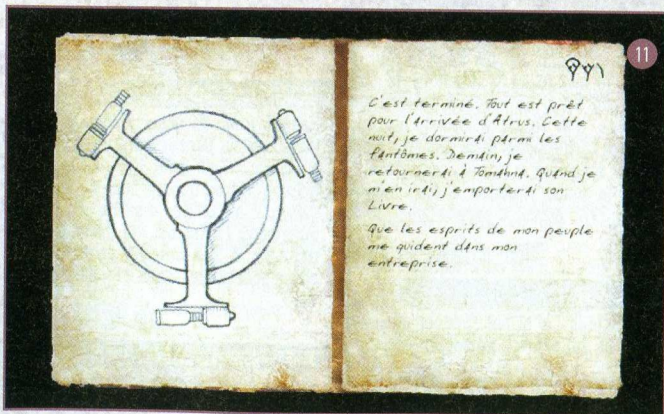 11
C'est terminé. Tout est prêt
pour l'arrivée d'Atrus. Cette
nuit, je dormirai parmi les
fantômes. Demain, je
retournerai à Tomahna. Quand je
m'en irai, j'emporterai son
Livre.
Que les esprits de mon peuple
me guident dans mon
entreprise.